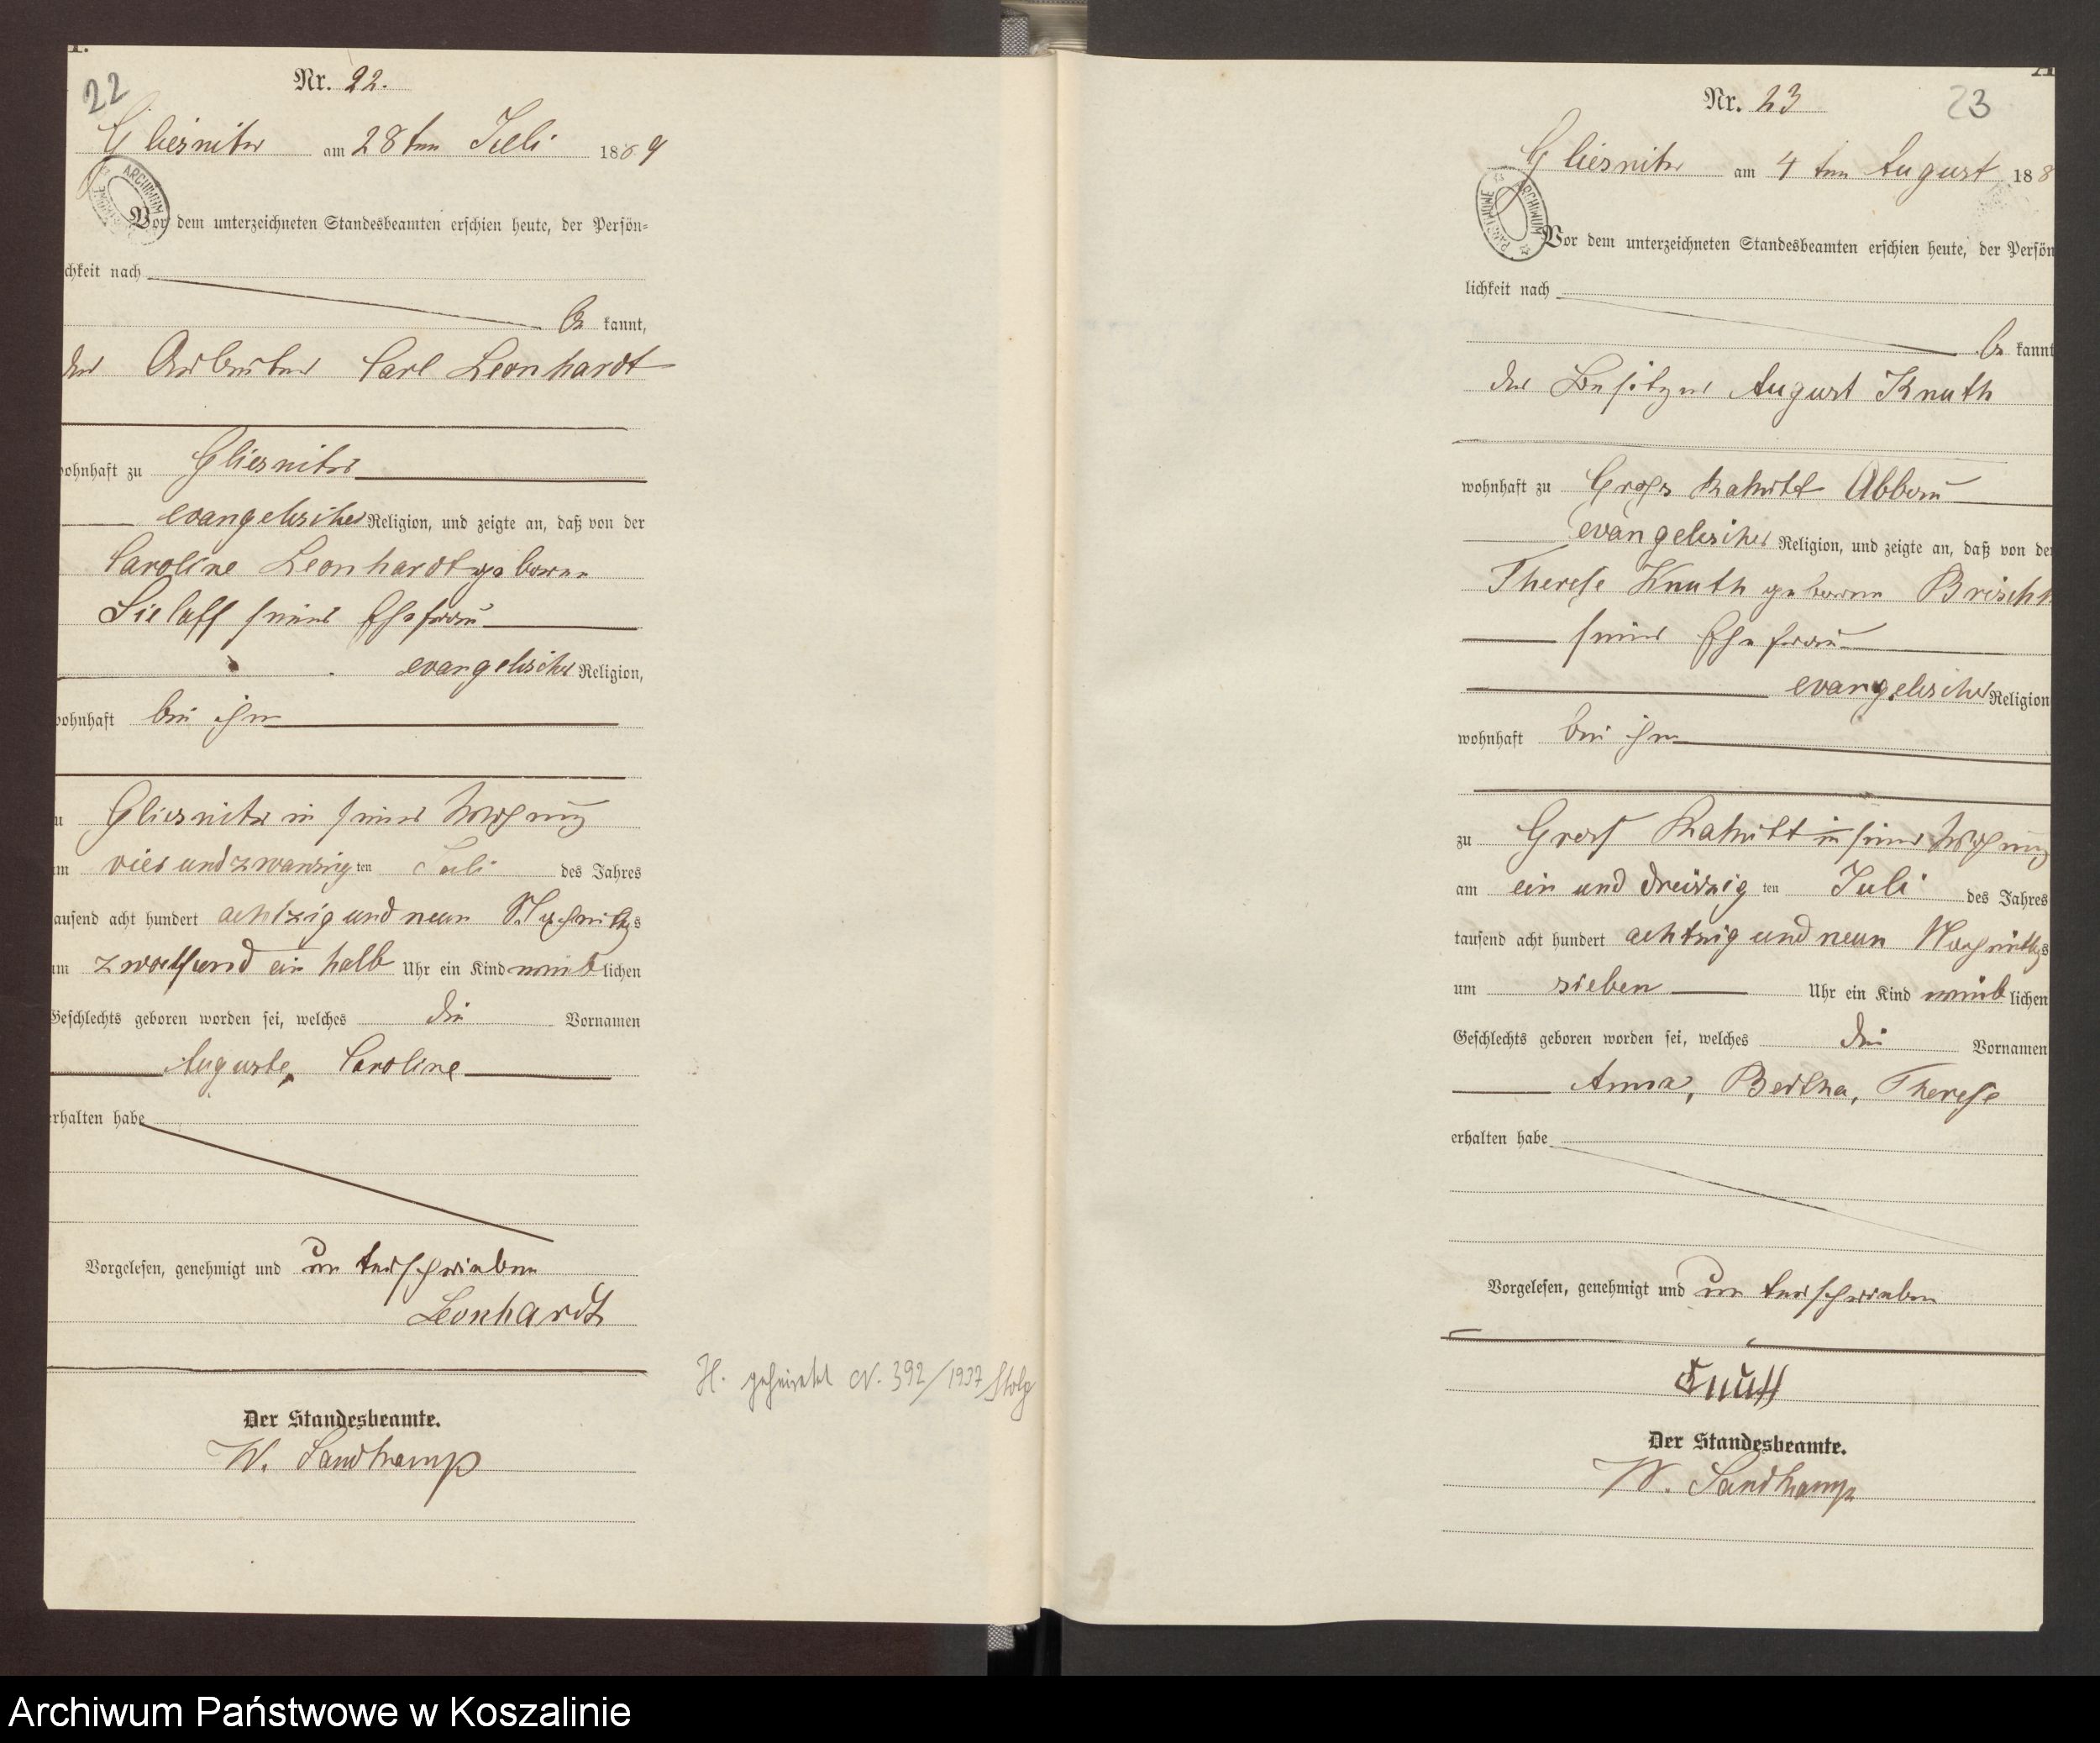 22
Nr. 22.
Gliesnitz am 28ten Juli 1889
ARCHIWUM
Vor dem unterzeichneten Standesbeamten erschien heute, der Persön-
chkeit nach
be kannt,
der Arbeiter Carl Leonhardt
wohnhaft zu Gliesnitz
evangelischer Religion, und zeigte an, daß von der
Caroline Leonhardt geborene
Sielaff seiner Ehefrau
evangelischer Religion,
wohnhaft bei ihm
zu Gliesnitz in seiner Wohnung
am vier und zwanzig ten Juli des Jahres
tausend acht hundert achtzig und neun Nachmittags
um zwoelf und ein halb Uhr ein Kind weib lichen
Geschlechts geboren worden sei, welches die Vornamen
Auguste, Caroline
erhalten habe
Vorgelesen, genehmigt und unterschrieben
Leonhardt
H. geheiratet N. 392/1937 Stolp
Der Standesbeamte.
W. Sandkamp
Nr. 23
23
Gliesnitz am 4ten August 188
ARCHIWUM PAŃSTWOWE
Vor dem unterzeichneten Standesbeamten erschien heute, der Persön
lichkeit nach
be kannt
der Besitzer August Knuth
wohnhaft zu Gross Rakitt Abbau
evangelischer Religion, und zeigte an, daß von der
Therese Knuth geborene
seiner Ehefrau
evangelischer Religion
wohnhaft bei ihm
zu Gross Rakitt in seiner Wohnung
am ein und dreissig ten Juli des Jahres
tausend acht hundert achtzig und neun Nachmittags
um sieben Uhr ein Kind weib lichen
Geschlechts geboren worden sei, welches die Vornamen
Anna, Bertha, Therese
erhalten habe
Vorgelesen, genehmigt und unterschrieben
Knuth
Der Standesbeamte.
W. Sandkamp
Archiwum Państwowe w Koszalinie